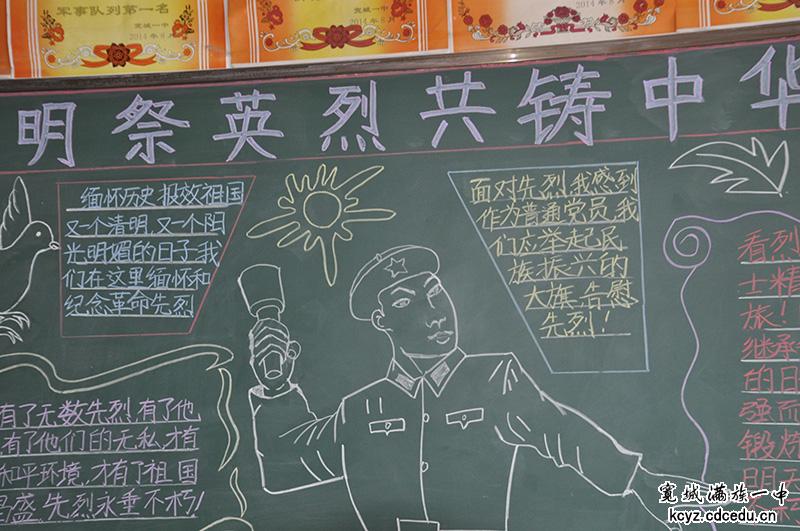 军事队列第一名
宽城一中
2014年8月
宽城一中
2014年8月
宽城一中
2014年8月
明祭英烈共铸中华
缅怀历史报效祖国
又一个清明,又一个阳
光明媚的日子我
们在这里缅怀和
纪念革命先烈
面对先烈,我感到
作为普通党员,我
们应举起民
族振兴的
大旗告慰
先烈!
有了无数先烈,有了他
有了他们的无私,才有
和平环境,才有了祖国
昌盛,先烈永垂不朽!
看烈
士精
旅!
继承
的日
强而
锻炼
明天
宽城满族一中
kcyz.cdcedu.cn